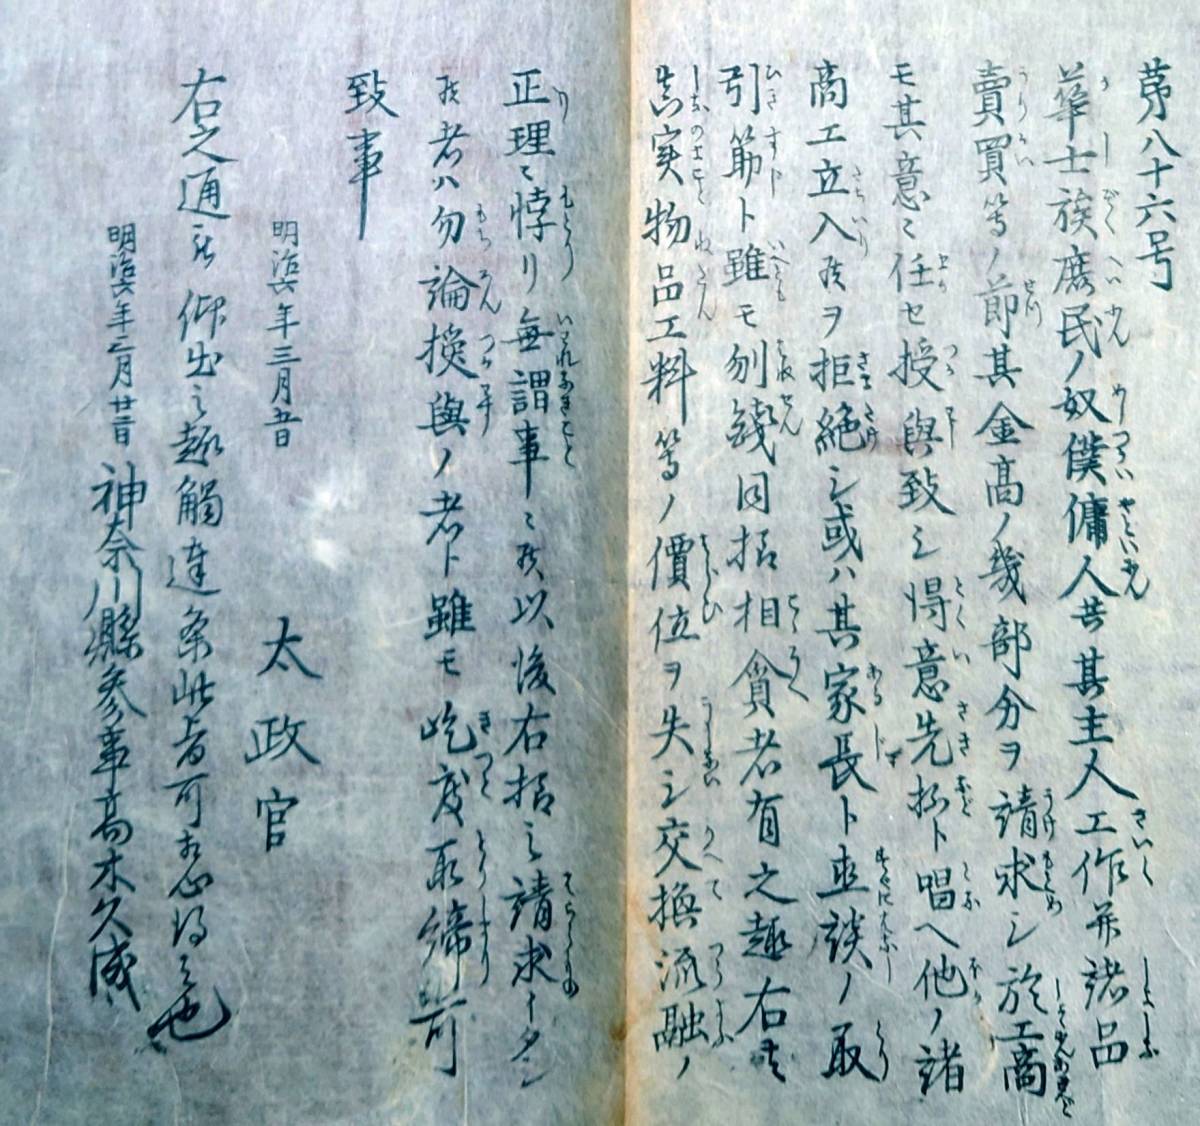 第八十六号
華士族庶民ノ奴僕傭人共其主人工作并諸品
賣買等ノ節其金高ノ幾部分ヲ請求シ於工商
モ其意ニ任セ授與致シ得意先抔ト唱ヘ他ノ諸
商工立入候ヲ拒絶シ或ハ其家長ト直談ノ取
引筋ト雖モ刎錢同様相貪者有之趣右ハ
其実物品工料等ノ價位ヲ失シ交換流融ノ
正理ニ悖リ無謂事ニ候以後右様之請求イタシ
候者ハ勿論授與ノ者ト雖モ屹度取締可
致事
明治六年三月五日
太政官
右之通被仰出之趣觸達条此旨可相心得もの也
明治六年三月廿二日 神奈川縣参事高木久成